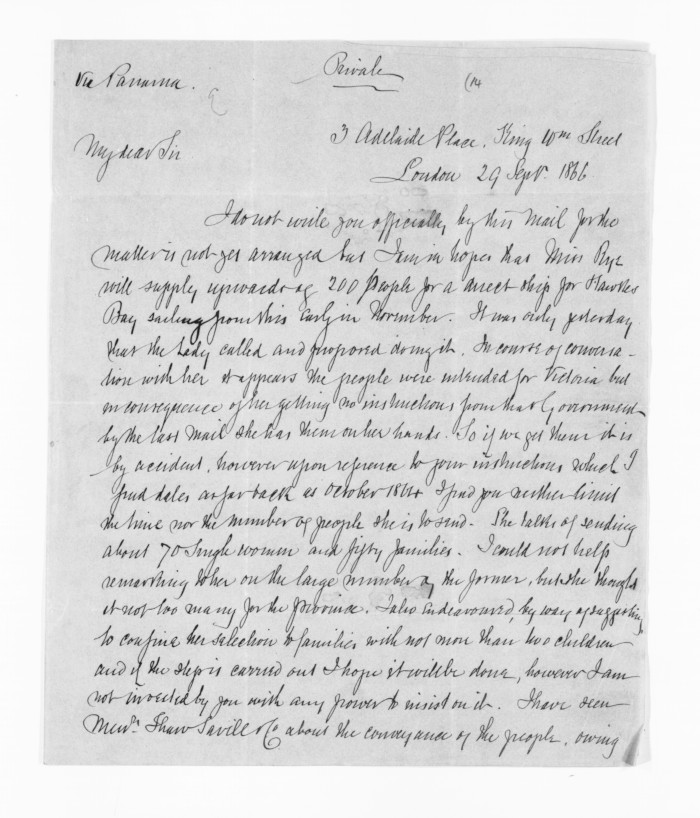 Private
Via Panama.
3 Adelaide Place, King Wm Street
London 29 Sepr. 1866
My dear Sir
I do not write you officially by this Mail for the
matter is not yet arranged but I am in hopes that Miss Rye
will supply upwards of 200 people for a direct ship for Hawkes
Bay sailing from this Early in November. It was only yesterday
that the Lady called and proposed doing it. In course of conversa-
tion with her it appears the people were intended for Victoria but
in consequence of her getting no instructions from that Government
by the last Mail she has them on her hands. So if we get them it is
by accident, however upon reference to your instructions which I
find dates as far back as October 1864 I find you neither limit
the time nor the number of people she is to send. She talks of sending
about 70 Single women and fifty families. I could not help
remarking to her on the large number of the former, but she thought
it not too many for the province. I also Endeavoured, by way of suggestion,
to confine her selection to families with not more than two children
and if the ship is carried out I hope it will be done, however I am
not invested by you with any power to insist on it. I have seen
Messrs. Shaw Savill & Co about the conveyance of the people, owing